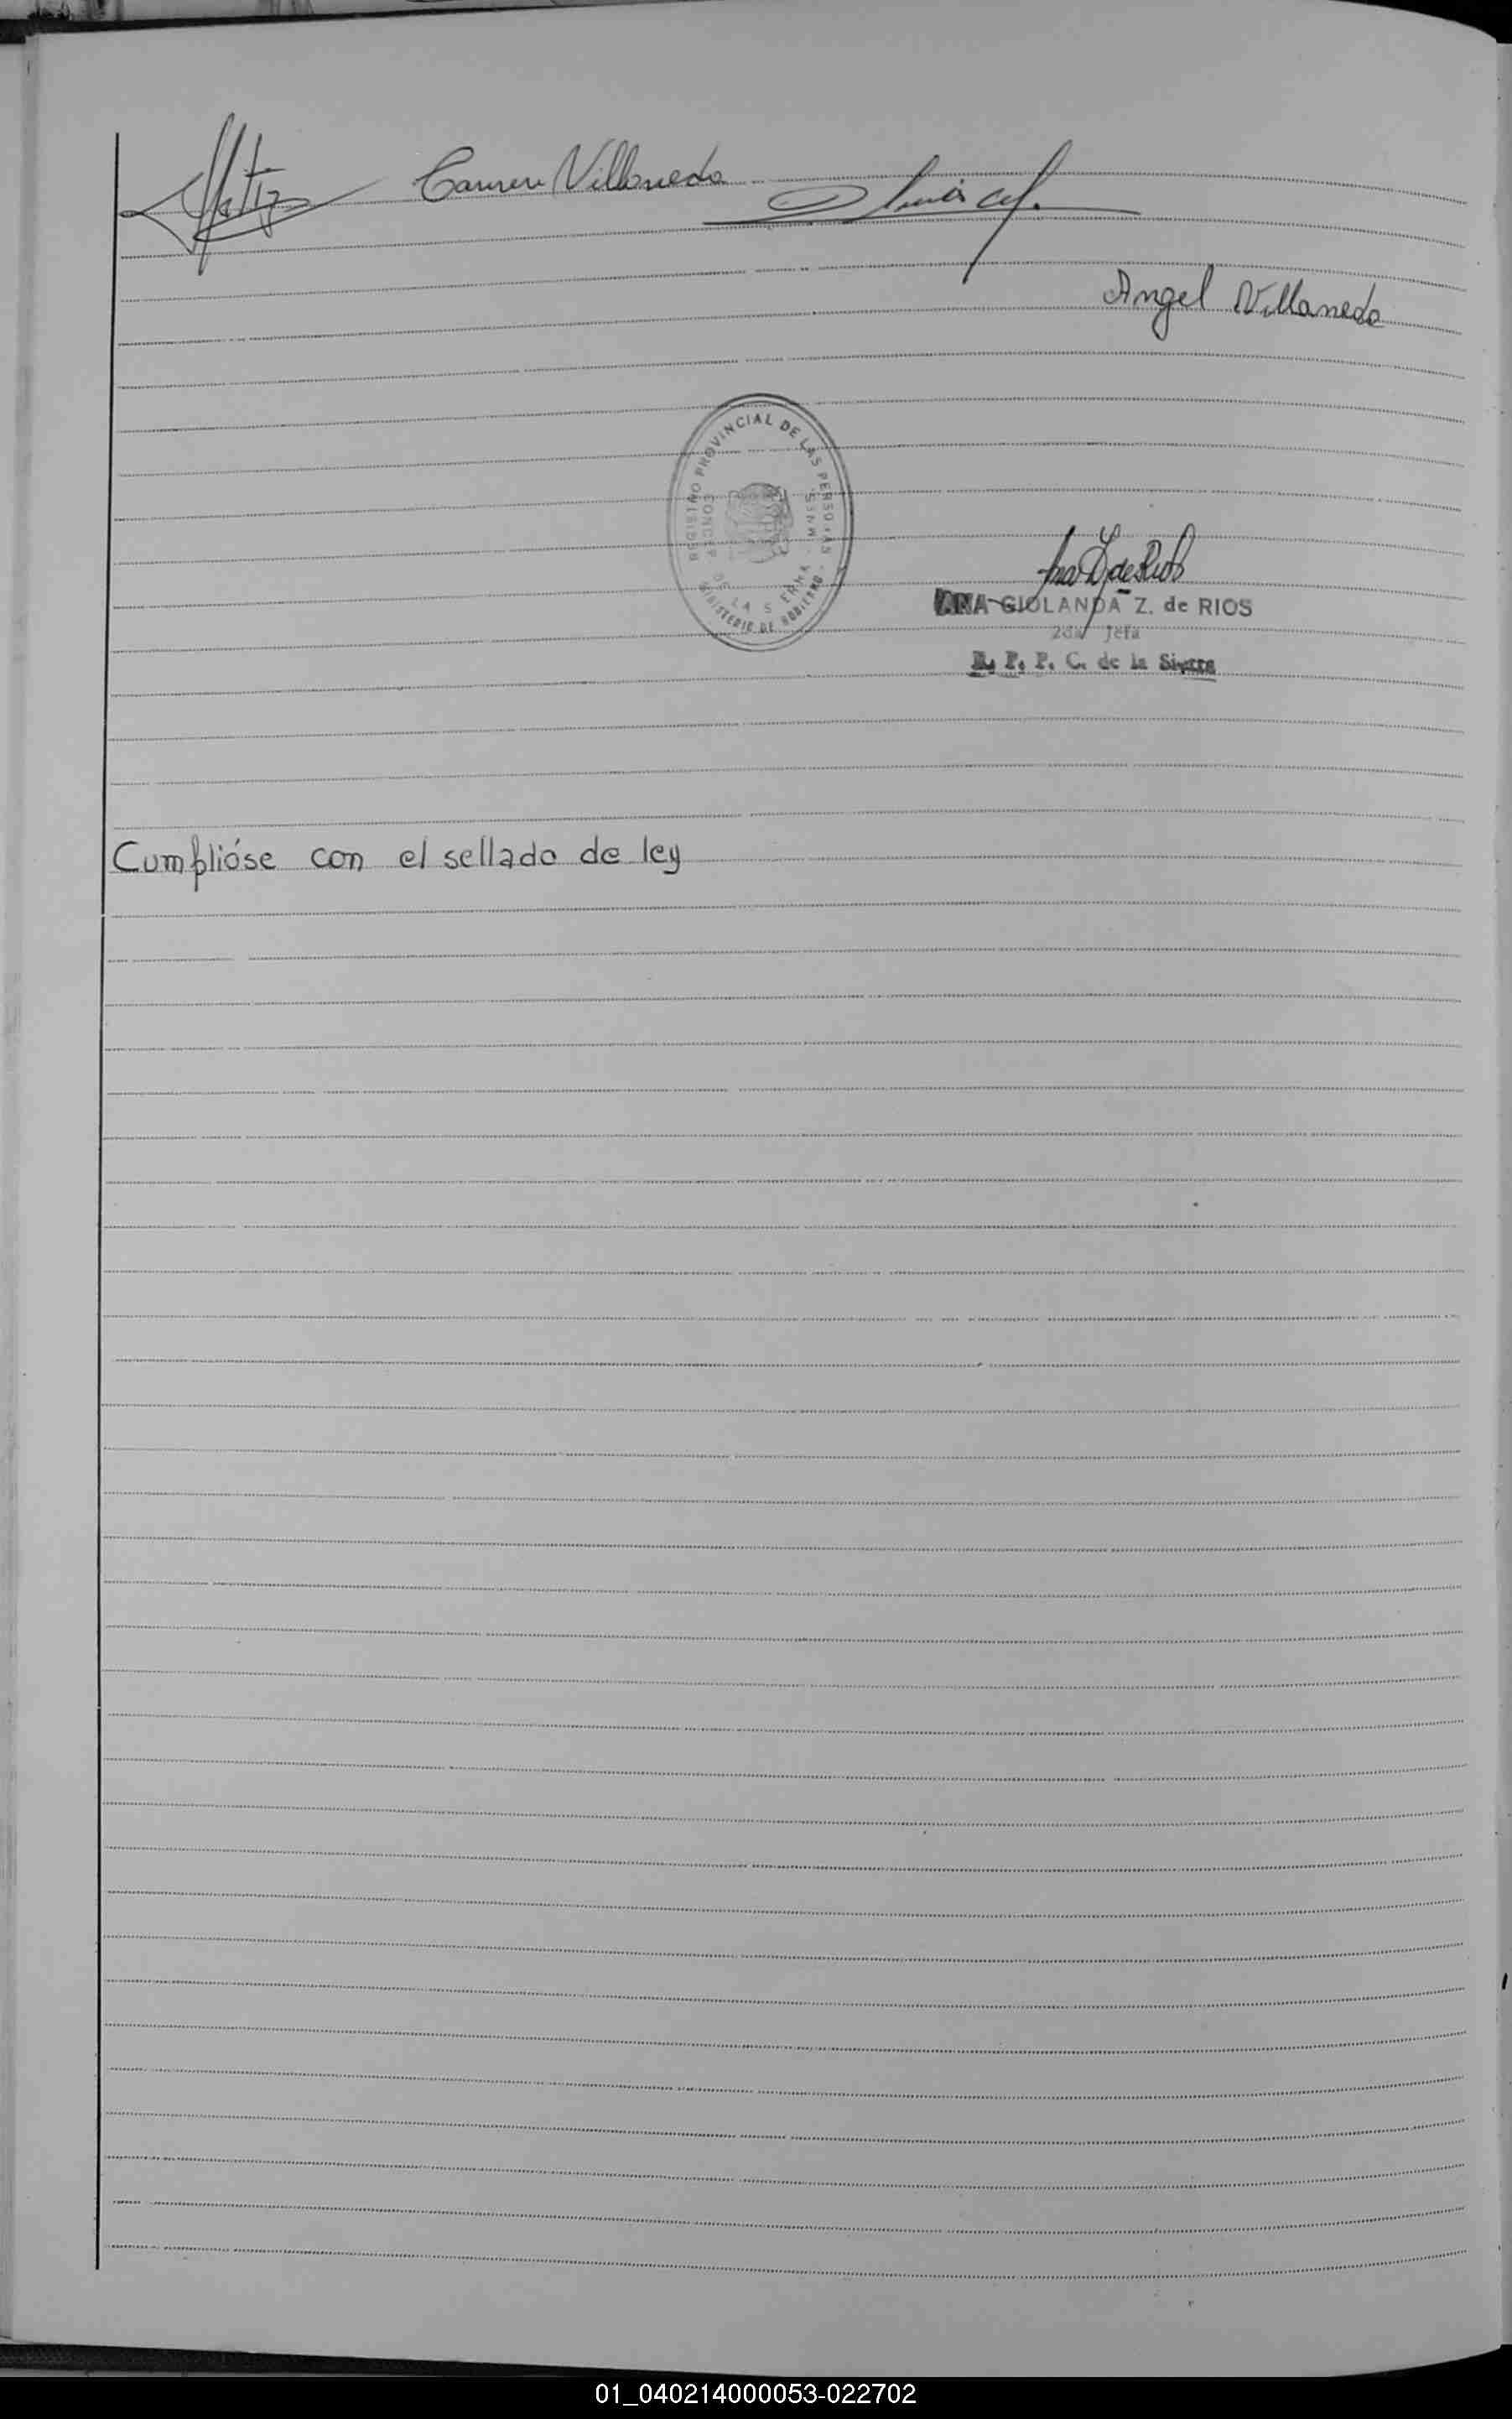 Carmen Villanueda
Angel Villaneda
REGISTRO PROVINCIAL DE LAS PERSONAS
CONCEPCION DE LA SIERRA - MNES.
MINISTERIO DE GOBIERNO
ANA GIOLANDA Z. de RIOS
2da Jefa
R. P. P. C. de la Sierra
Cumplióse con el sellado de ley
01_040214000053-022702